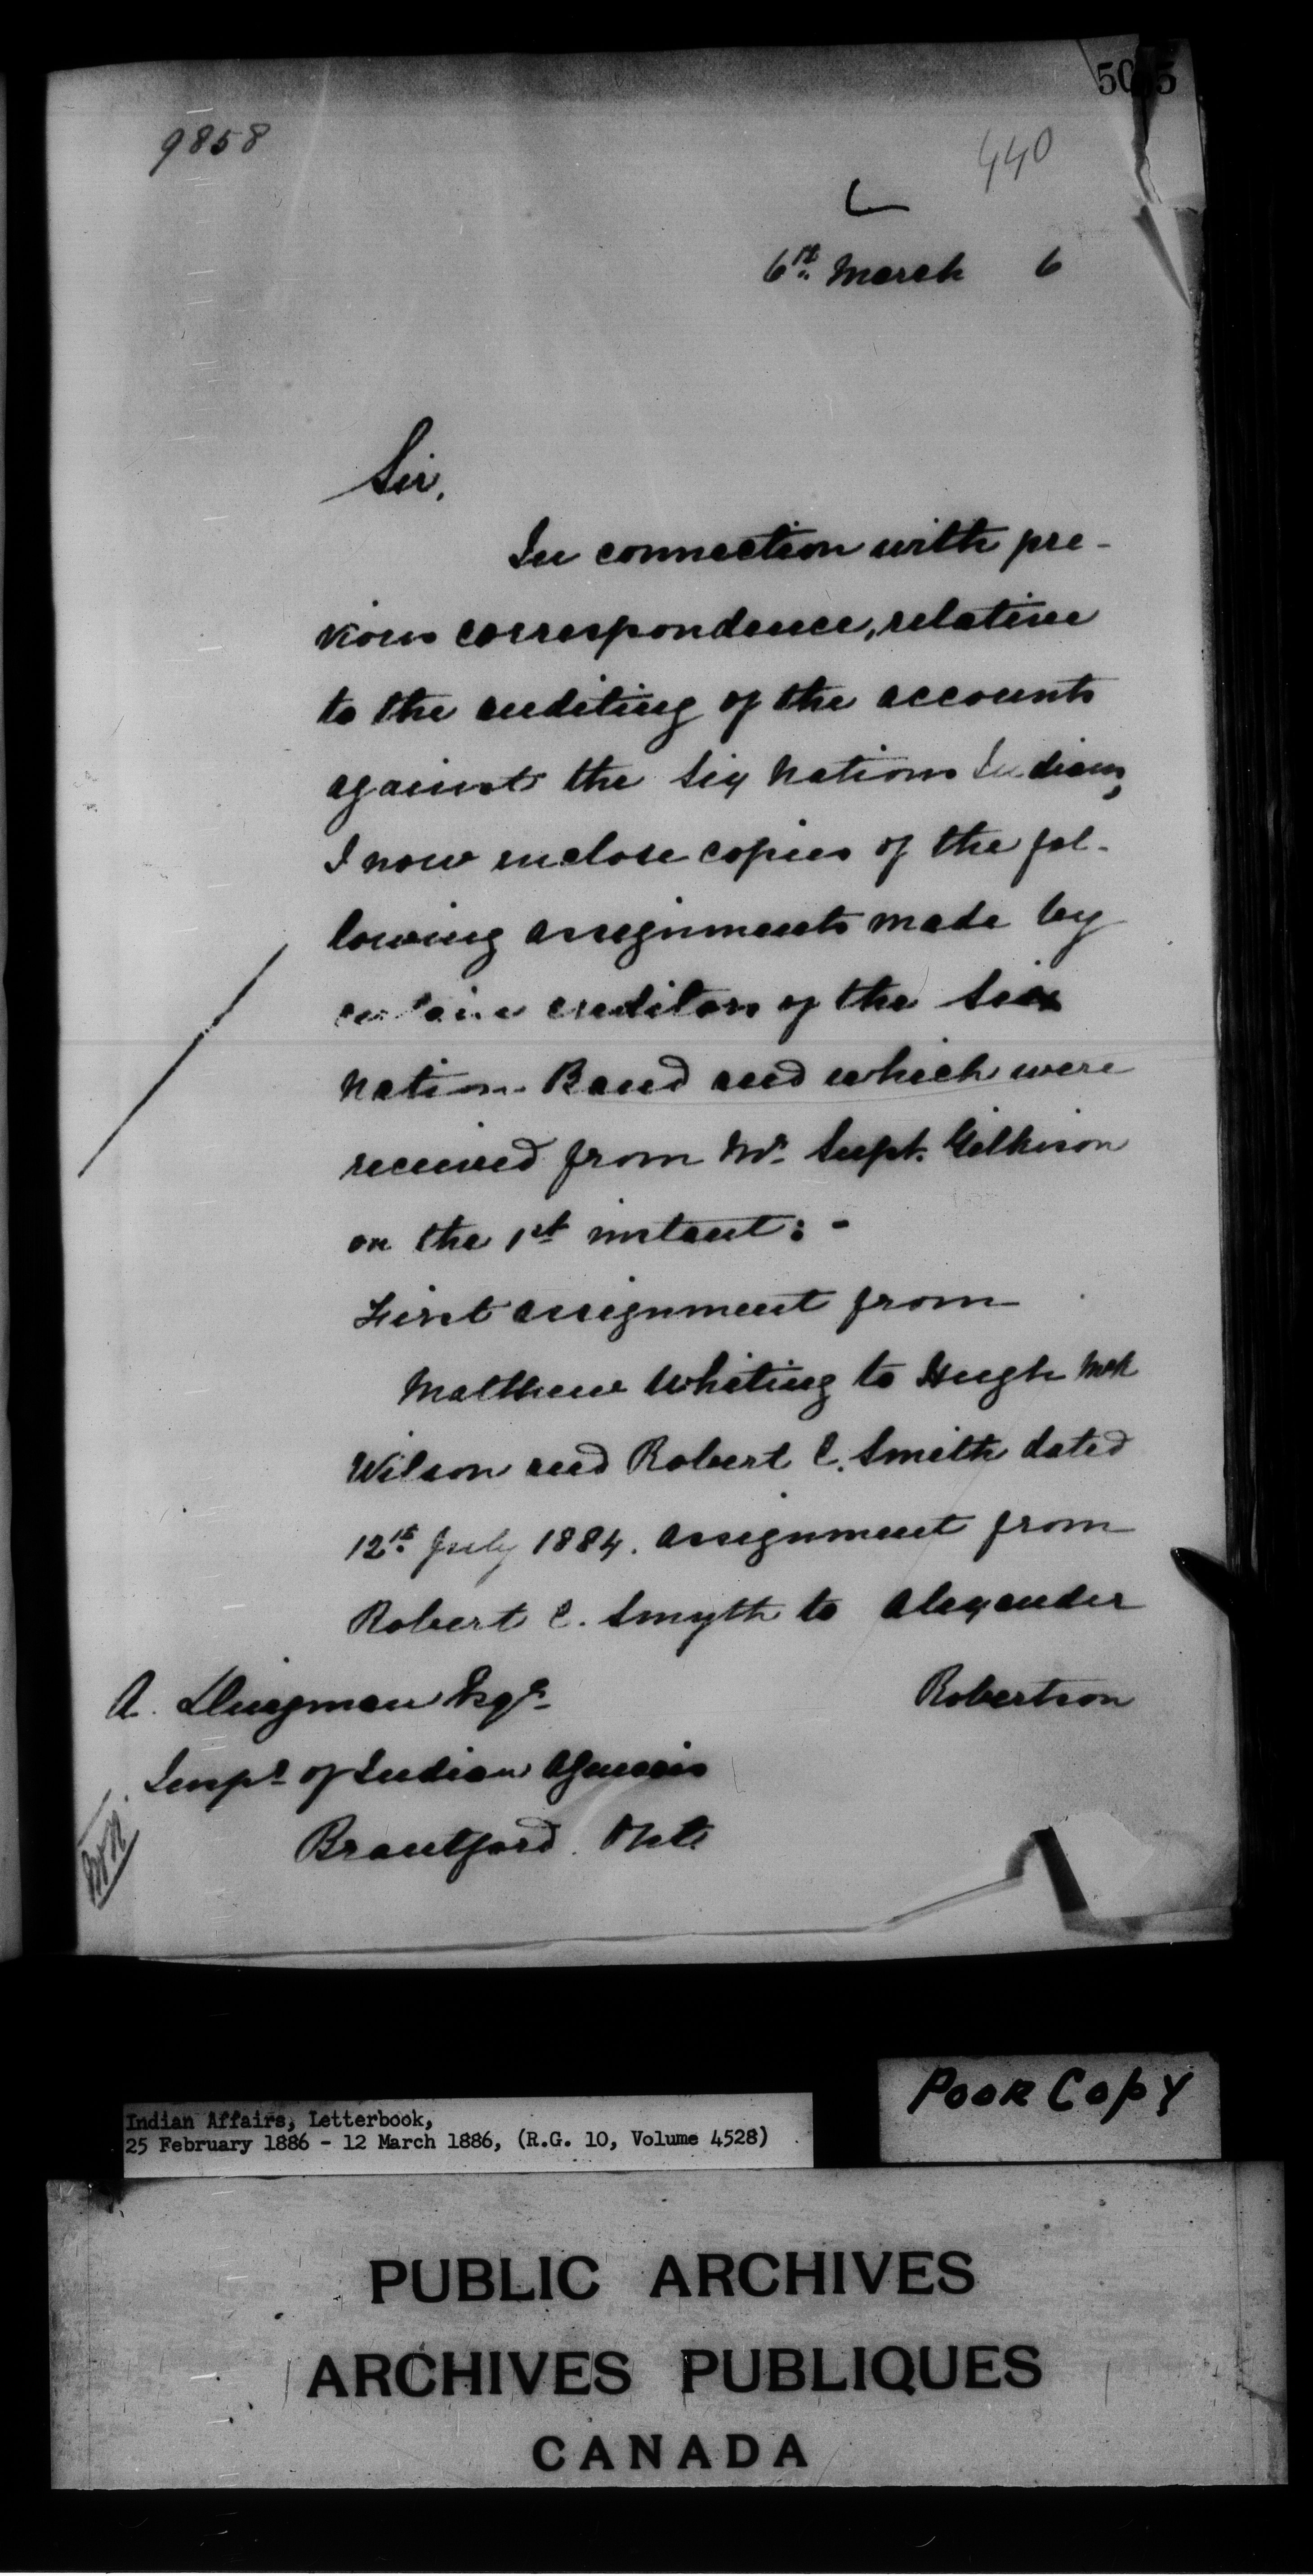 9858
440
L
6th March 6
Sir,
In connection with pre-
vious correspondence, relative
to the auditing of the accounts
against the Six Nations Indians,
I now enclose copies of the fol-
lowing assignments made by
certain creditors of the Six
Nation Band and which were
received from Mr. Supt. Gilkison
on the 1st instant: -
First assignment from
Matthew Whiting to Hugh McK
Wilson and Robert C. Smith dated
12th July 1884. Assignment from
Robert C. Smyth to Alexander
Robertson
A. Dingman Esqr
Inspr of Indian Agencies
Brantford. Ont.
POOR COPY
Indian Affairs, Letterbook,
25 February 1886 - 12 March 1886, (R.G. 10, Volume 4528)
PUBLIC ARCHIVES
ARCHIVES PUBLIQUES
CANADA